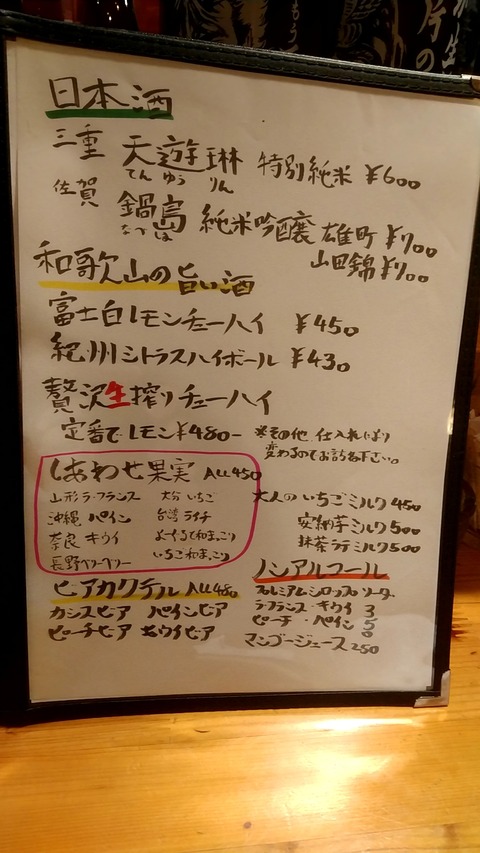 日本酒
三重 天遊琳 特別純米 ¥600
てん ゆう りん
佐賀 鍋島 純米吟醸 雄町 ¥700
なべ しま
山田錦 ¥700
和歌山の旨い酒
富士白レモンチューハイ ¥450
紀州シトラスハイボール ¥430
贅沢生搾りチューハイ
定番でレモン¥480-
※その他 仕入れにより
変わるのでお訪ね下さい。
しあわせ果実 ALL450
山形ラ・フランス 大分いちご
沖縄 パイン 台湾ライチ
奈良 キウイ よーぐるてまっこり
長野ベリーベリー いちごdeまっこり
大人のいちごミルク 450
安納芋ミルク500
抹茶ラテミルク500
ビアカクテル ALL480
カシスビア パインビア
ピーチビア キウイビア
ノンアルコール
プレミアムシロップソーダ
ラ・フランス・キウイ
ピーチ・パイン
350
マンゴージュース250